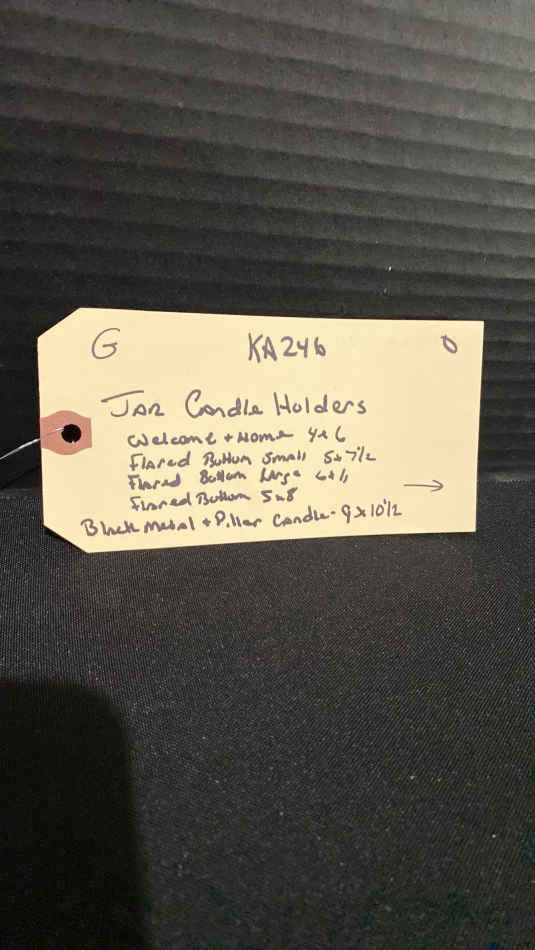 G KA246 0
Jar Candle Holders
Welcome + Home 4x6
Flared Bottom Small 5x7 1/2
Flared Bottom Large
Flared Bottom 5x8
Black Metal + Pillar Candle - 9x10 1/2